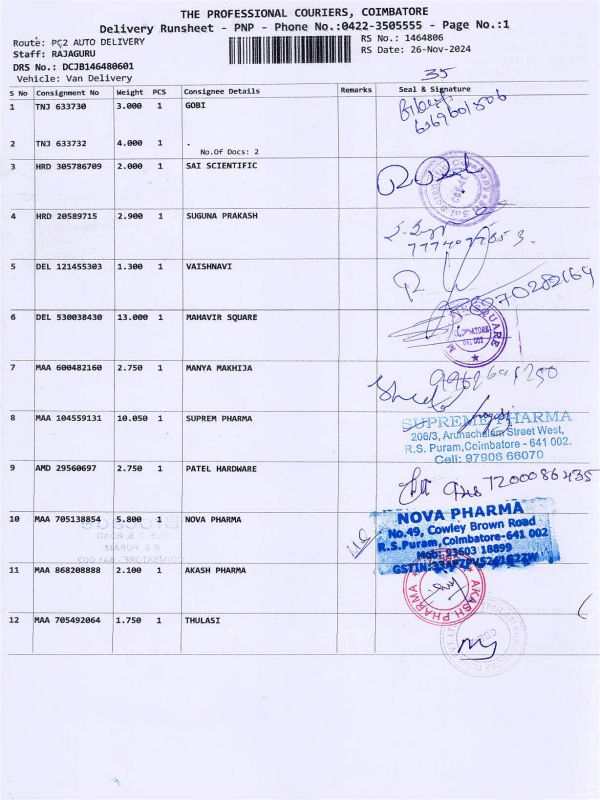 THE PROFESSIONAL COURIERS, COIMBATORE
Delivery Runsheet - PNP - Phone No.:0422-3505555 - Page No.:1
Route: PC2 AUTO DELIVERY
RS No.: 1464806
Staff: RAJAGURU
RS Date: 26-Nov-2024
DRS No.: DCJB146480601
Vehicle: Van Delivery
35
S No Consignment No Weight PCS Consignee Details Remarks Seal & Signature
1 TNJ 633730 3.000 1 GOBI
2 TNJ 633732 4.000 1 .
No.Of Docs: 2
3 HRD 305786709 2.000 1 SAI SCIENTIFIC
4 HRD 20589715 2.900 1 SUGUNA PRAKASH
5 DEL 121455303 1.300 1 VAISHNAVI
6 DEL 530038430 13.000 1 MAHAVIR SQUARE
SQUARE
COIMBATORE
641 002
7 MAA 600482160 2.750 1 MANYA MAKHIJA
8 MAA 104559131 10.050 1 SUPREM PHARMA
SUPREME PHARMA
206/3, Arunachalam Street West,
R.S. Puram, Coimbatore - 641 002.
Cell: 97906 66070
9 AMD 29560697 2.750 1 PATEL HARDWARE
7200086435
10 MAA 705138854 5.800 1 NOVA PHARMA
NOVA PHARMA
No.49, Cowley Brown Road
R.S.Puram, Coimbatore-641 002
11 MAA 868208888 2.100 1 AKASH PHARMA
AKASH PHARMA
12 MAA 705492064 1.750 1 THULASI